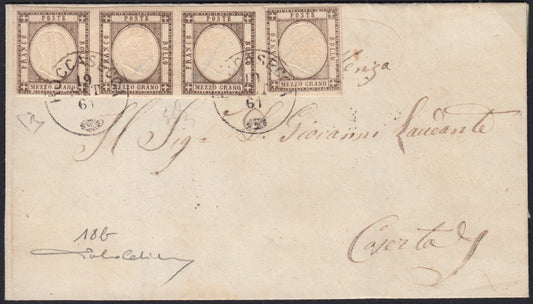 FRANCO POSTE BOLLO MEZZO GRANO
FRANCO POSTE BOLLO MEZZO GRANO
FRANCO POSTE BOLLO MEZZO GRANO
FRANCO POSTE BOLLO MEZZO GRANO
19
61
19
61
Al Sig. D. Giovanni Laudante
Caserta
18b